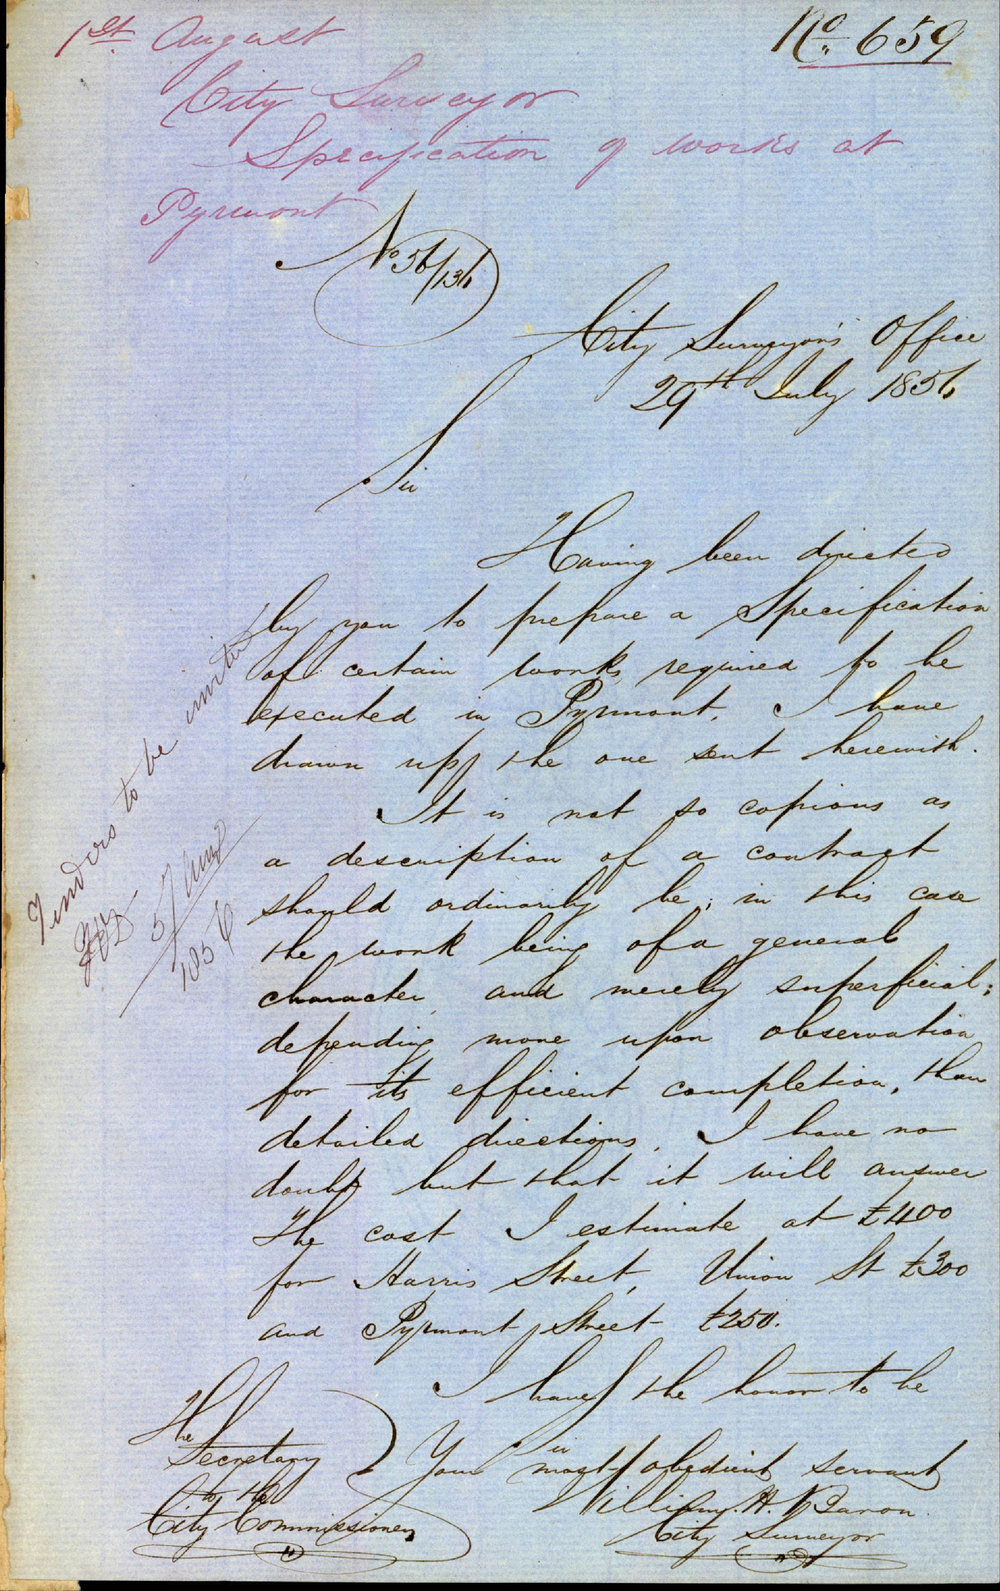 1st August
No. 659
City Surveyor
Specification of works at
Pyrmont
No 56/136
City Surveyor's Office
29th July 1856
Sir
Having been directed
by you to prepare a Specification
of certain works required to be
executed in Pyrmont, I have
drawn up the one sent herewith.
It is not so copious as
a description of a contract
should ordinarily be; in this case
the work being of a general
character and merely superficial;
depending more upon observation
for its efficient completion, than
detailed directions. I have no
doubt but that it will answer
The cost I estimate at £400
for Harris Street, Union St £300
and Pyrmont Street £250.
I have the honor to be
Sir
Your most obedient servant
William H. Baron
City Surveyor
The
Secretary
to the
City Commissioners
Tenders to be invited
5/ Augt
1856